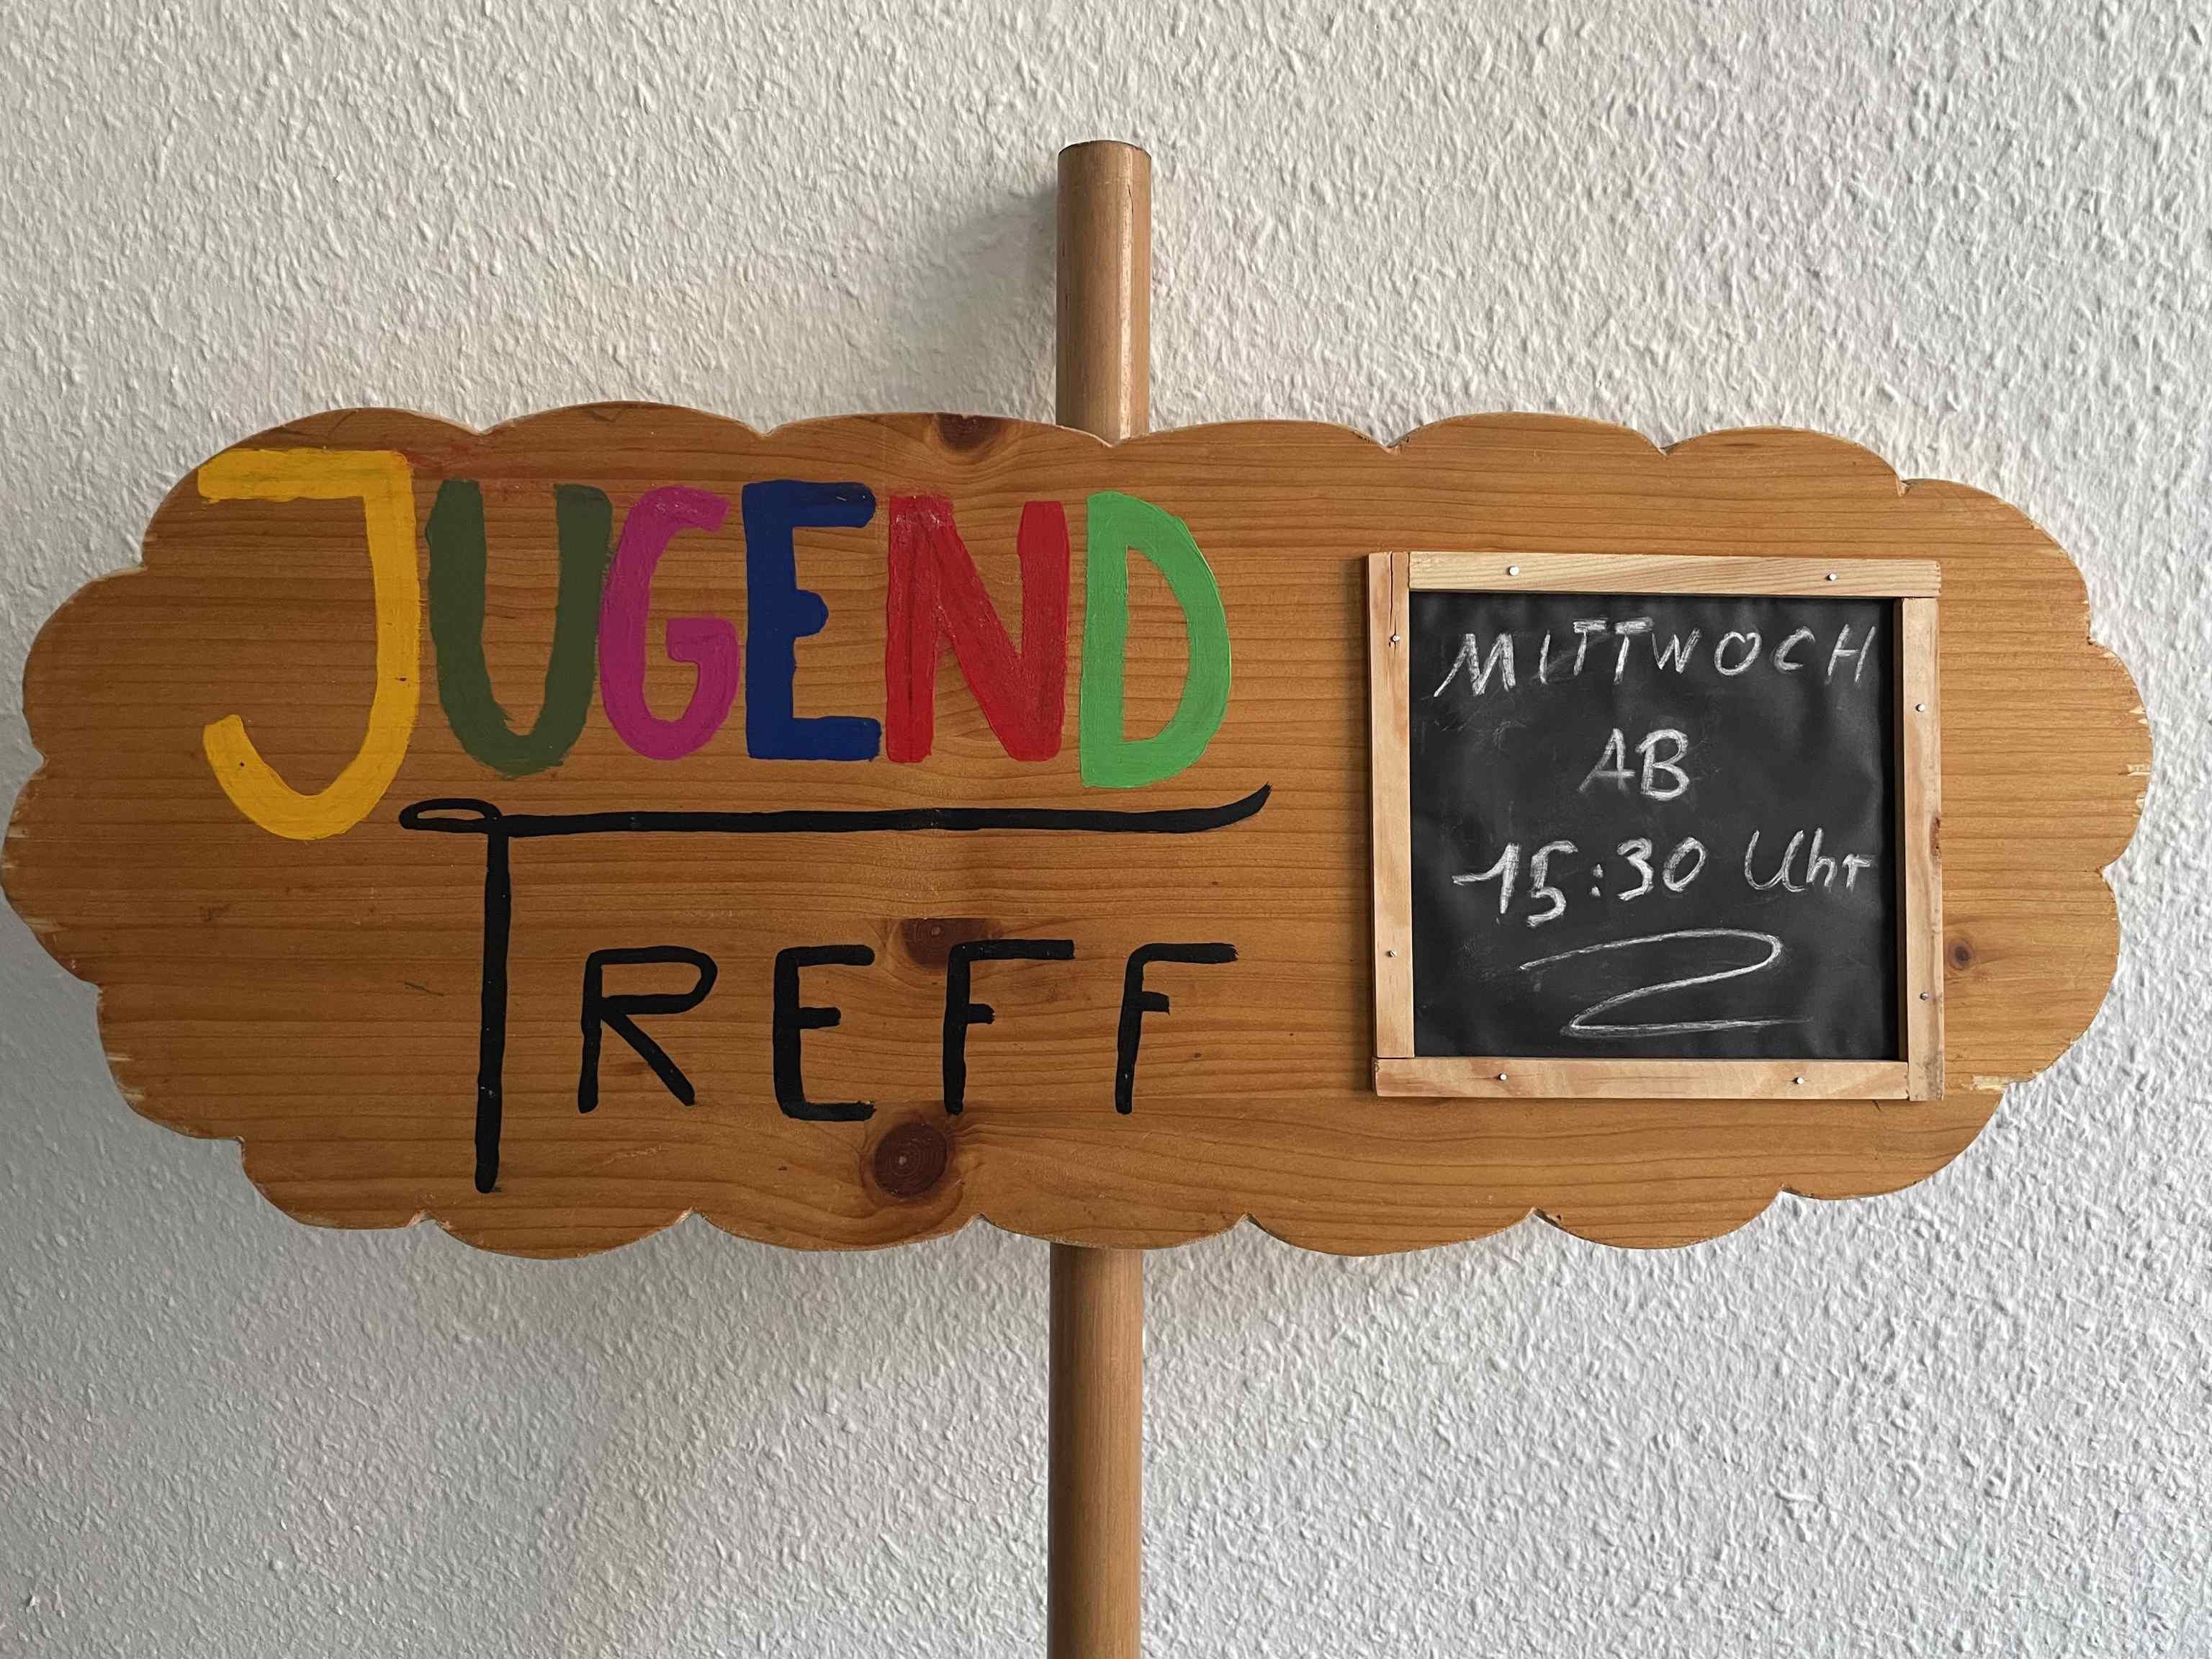 JUGEND
TREFF
MITTWOCH
AB
15:30 Uhr